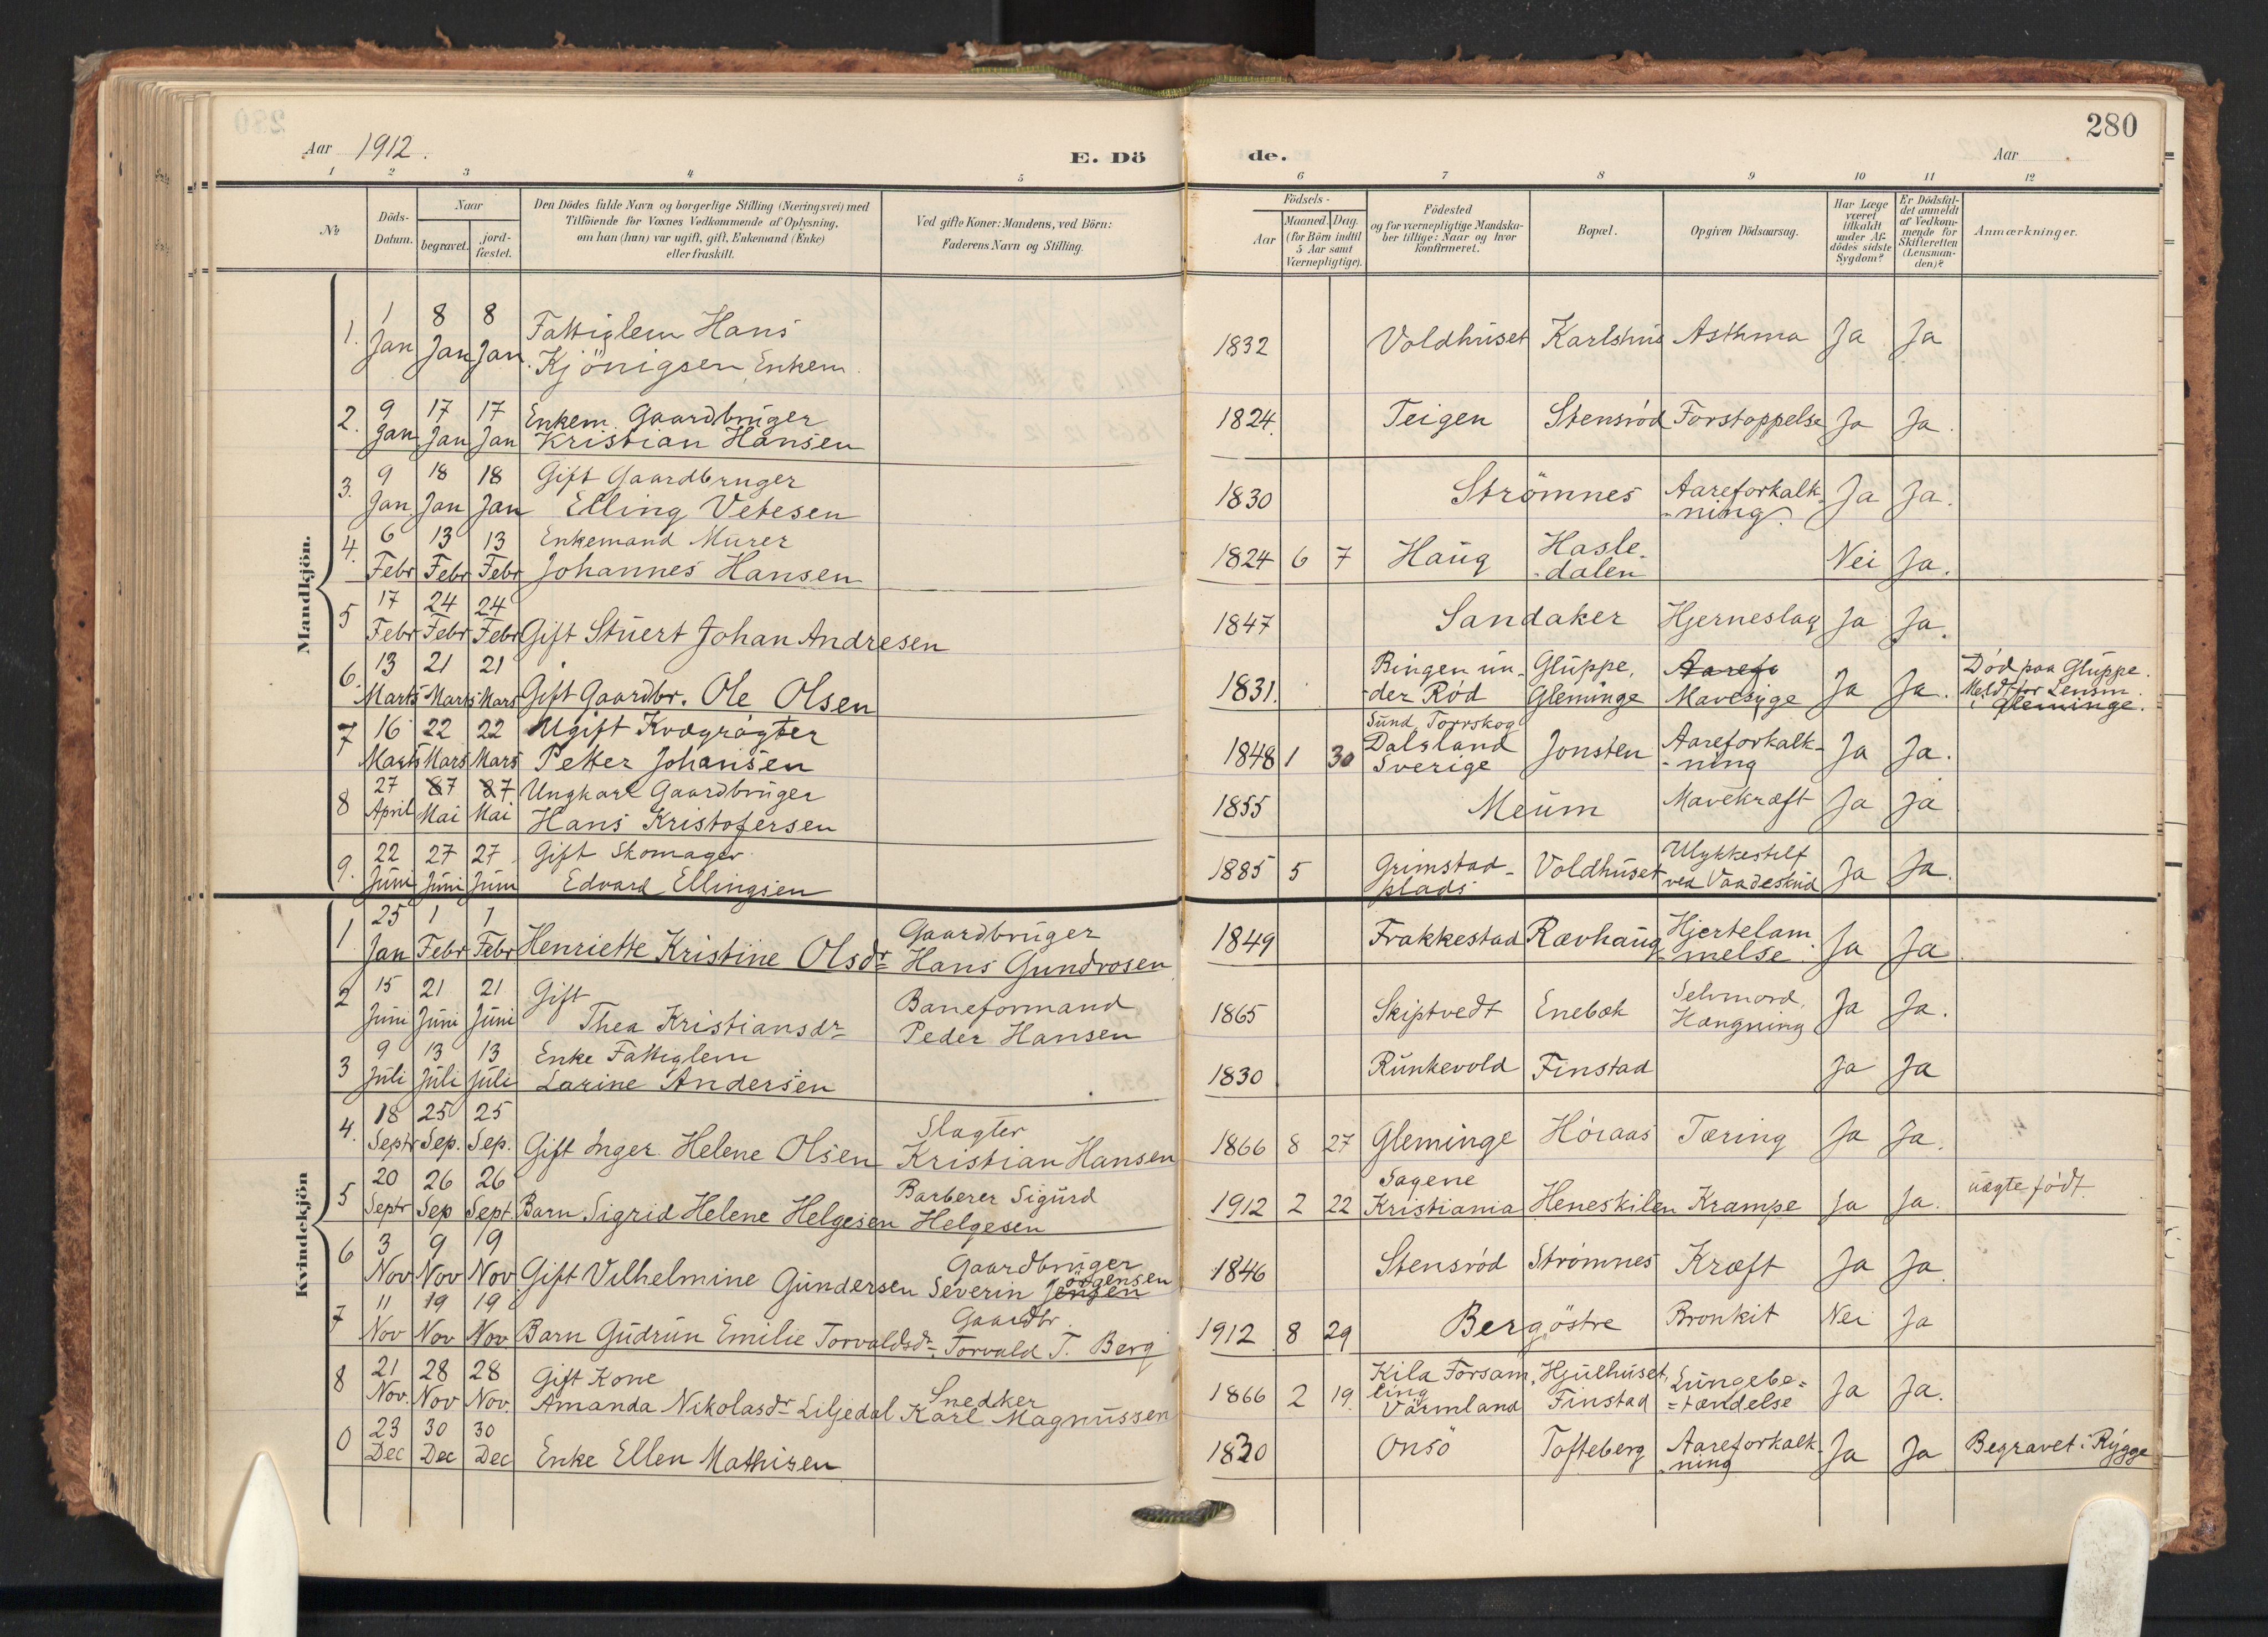 280
Aar 1912.
E. Döde.
Aar
1 2 3 4 5 6 7 8 9 10 11 12
№
Döds-Datum.
Naar
begravet.
jord-fæstet.
Den Dödes fulde Navn og borgerlige Stilling (Næringsvei) med
Tilföiende for Voxnes Vedkommende af Oplysning,
om han (hun) var ugift, gift, Enkemand (Enke)
eller fraskilt.
Ved gifte Koner: Mandens, ved Börn:
Faderens Navn og Stilling.
Födsels-
Aar
Maaned. Dag.
(for Börn indtil
5 Aar samt
Værnepligtige).
Födested
og for værnepligtige Mandska-
ber tillige: Naar og hvor
konfirmeret.
Bopæl.
Opgiven Dödsaarsag.
Har Læge
været
tilkaldt
under Af-
dödes sidste
Sygdom?
Er Dödsfal-
det anmeldt
af Vedkom-
mende for
Skifteretten
(Lensman-
den)?
Anmærkninger.
Mandkjön.
1. 1 Jan 8 Jan 8 Jan. Fattiglem Hans Kjönigsen, Enkem. 1832 Voldhuset Karlshus Asthma Ja Ja
2. 9 Jan 17 Jan 17 Jan Enkem. Gaardbruger Kristian Hansen 1824. Teigen Stensröd Forstoppelse Ja Ja.
3. 9 Jan. 18 Jan 18 Jan Gift Gaardbruger Elling Vetesen 1830 Strömnes Aareforkalk-ning. Ja Ja.
4. 6 Febr 13 Febr 13 Febr Enkemand Murer Johannes Hansen 1824 6 7 Haug Hasle-dalen Nei Ja.
5 17 Febr 24 Febr 24 Febr Gift Stuert Johan Andresen 1847 Sandaker Hjerneslag Ja Ja.
6. 13 Marts 21 Marts 21 Mars Gift Gaardbr. Ole Olsen 1831. Ringen un-der Röd Gluppe, Gleminge Aarefo Mavesyge Ja Ja. Död paa Gluppe. Meldt for Lensm. i Gleminge.
7 16 Marts 22 Mars 22 Mars Ugift Kvægrögter Petter Johansen 1848 1 30 Sund, Torrskog Dalsland Sverige Jonsten Aareforkalk-ning Ja Ja.
8 27 April 87 Mai 87 Mai Ungkarl Gaardbruger Hans Kristofersen 1855 Meum Mavekræft Ja Ja
9. 22 Juni 27 Juni 27 Juni Gift Skomager Edvard Ellingsen 1885 5 Grimstad-plads Voldhuset Ulykkestilf ved Vaadeskud Ja Ja.
Kvindekjön
1 25 Jan 1 Febr 1 Febr Henriette Kristine Olsdr Gaardbruger Hans Gundrosen 1849 Frakkestad Rævhaug Hjertelam-melse. Ja Ja
2 15 Juni 21 Juni 21 Juni Gift Thea Kristiansdr Baneformand Peder Hansen 1865 Skiptvedt Enebæk Selvmord, Hængning Ja Ja.
3 9 Juli 13 Juli 13 Juli Enke Fattiglem Larine Andersen 1830 Runkevold Finstad Ja Ja
4. 18 Septr 25 Sep. 25 Sep. Gift Inger Helene Olsen Slagter Kristian Hansen 1866 8 27 Gleminge Höraas Tæring Ja Ja.
5 20 Septr 26 Sep 26 Sept. Barn Sigrid Helene Helgesen Barberer Sigurd Helgesen 1912 2 22 Sagene Kristiania Heneskilen Krampe Ja Ja. uægte födt.
6 3 Nov 9 Nov 19 Nov Gift Vilhelmine Gundersen Gaardbruger Severin Jensen Jörgensen 1846 Stensröd Strömnes Kræft Ja Ja
7 11 Nov 19 Nov 19 Nov. Barn Gudrun Emilie Torvaldsdr. Gaardbr. Torvald T. Berg 1912 8 29 Berg östre Bronkit Nei Ja
8 21 Nov. 28 Nov 28 Nov. Gift Kone Amanda Nikolasdr Liljedal Snedker Karl Magnussen 1866 2 19 Kila Forsam-ling Värmland Hjulhuset, Finstad Lungebe=tændelse Ja Ja.
0 23 Dec 30 Dec 30 Dec Enke Ellen Mathisen 1830 Onsö Tofteberg Aareforkalk-ning Ja Ja Begravet i Rygge